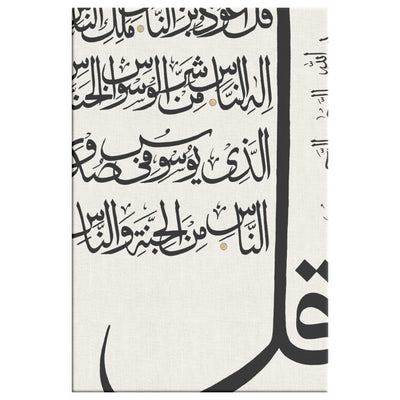 قل أعوذ برب الناس ملك النا
إله الناس من شر الوسواس الخنا
الذي يوسوس في صدو
الناس من الجنة والناس
قل
الله